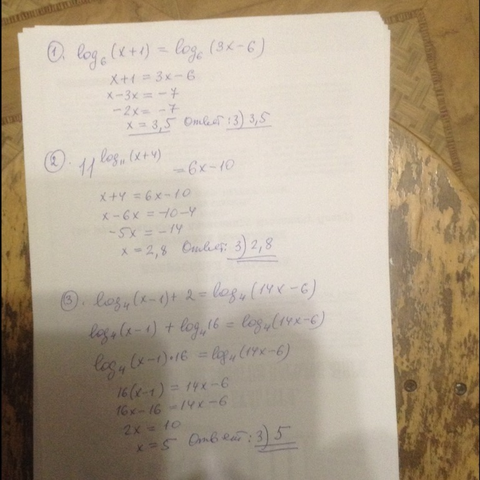 1. log₆(x+1) = log₆(3x-6)
x+1 = 3x-6
x-3x = -7
-2x = -7
x = 3,5 Ответ: 3) 3,5
2. 11^log₁₁(x+4) = 6x-10
x+4 = 6x-10
x-6x = -10-4
-5x = -14
x = 2,8 Ответ: 3) 2,8
3. log₄(x-1) + 2 = log₄(14x-6)
log₄(x-1) + log₄16 = log₄(14x-6)
log₄(x-1)•16 = log₄(14x-6)
16(x-1) = 14x-6
16x-16 = 14x-6
2x = 10
x = 5 Ответ: 3) 5